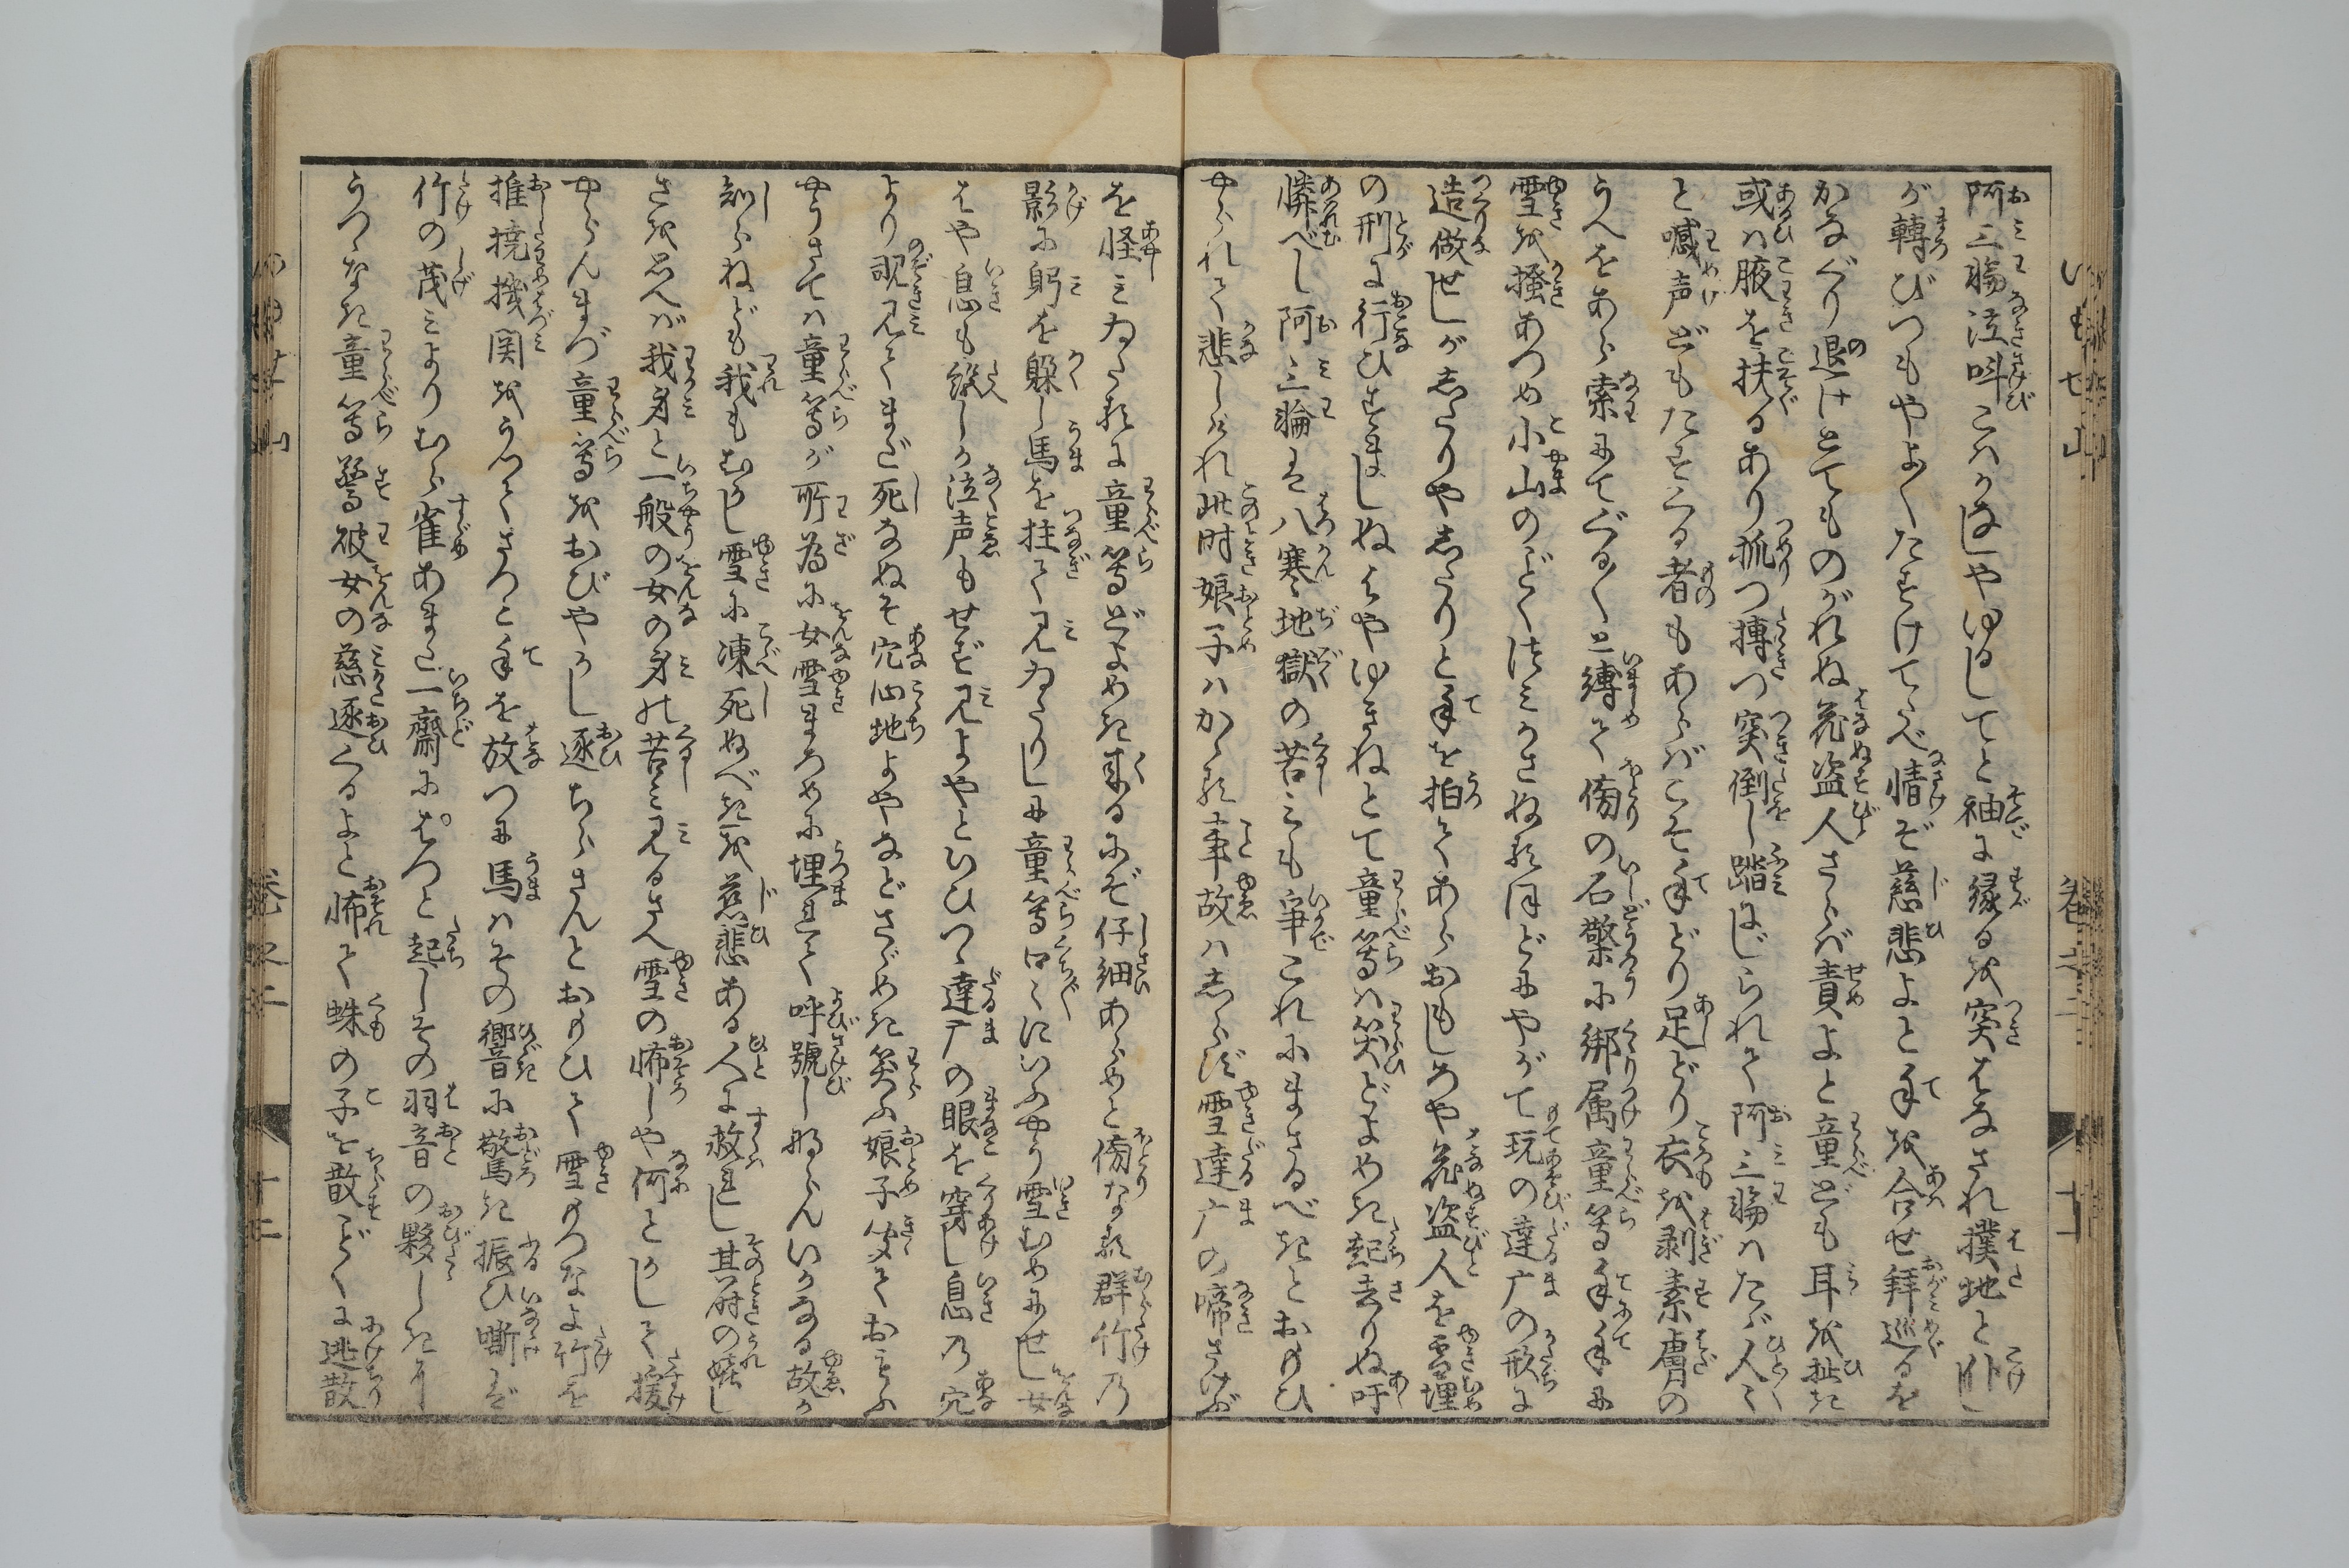 阿三輪泣叫こハかなしやゆるしてと袖に縁るを突はなされ撲地と仆し
が轉びつもやよくたすけてたべ情ぞ慈悲よと手を合せ拜巡るを
かなぐり退けとてものがれぬ花盗人さらバ責よと童ども耳を扯き
或ハ腋を扶るあり抓つ摶つ突倒し踏にじられて阿三輪ハたゞ人〻
と喊声どもたすくる者もあらバこそ手どり足どり衣を剥素膚の
うへをあら索にてぐる〱と縛て傍の石檠に綁属童等手手に
雪を掻あつめ小山のごとく積みかさねるほどにやがて玩の達广の形に
造做せしがしたりやしたりと手を拍てあらおもしろや花盗人を雪埋
の刑に行ひすましぬはやゆきねとて童等ハ笑どよめき起去りぬ吁
憐べし阿三輪は八寒地獄の苦しみも争これにまさるべきとおもひ
やられて悲しけれ此时娘子ハかゝる事故ハしらず雪達广の啼さけぶ
を怪みゐたるに童等どよめき来るにぞ仔細あらめと傍なる群竹の
影に躬を躱し馬を拄て見ゐたりしに童等口〻にいふやう雪むめにせし女
はや息も絶しか泣声もせずぞ見よやといひつゝ達广の眼を穿し息の穴
より覗見てまだ死なぬぞ穴心地よやなどさゞめき笑ふ娘子聞ておもふ
やうさてハ童等が所為に女雪まろめに埋れて呼號しならんいかなる故か
知らねども我もむかし雪に凍死ぬべきを慈悲ある人に救れし其时の嬉し
さを思へバ我身と一般の女の身の苦しみ見るさへ雪の怖しや何とかして援
やらんまづ童等をおびやかし逐ちらさんとおもひて雪のつなよ竹を
推撓機関をうつてさつと手を放つに馬ハその響に驚き振ひ嘶ば
竹の茂みよりむら雀あまた一齊にはつと起しその羽音の夥しきに
うつゝなき童等驚破女の慈逐くるよと怖て蛛の子を散ごとくに逃散